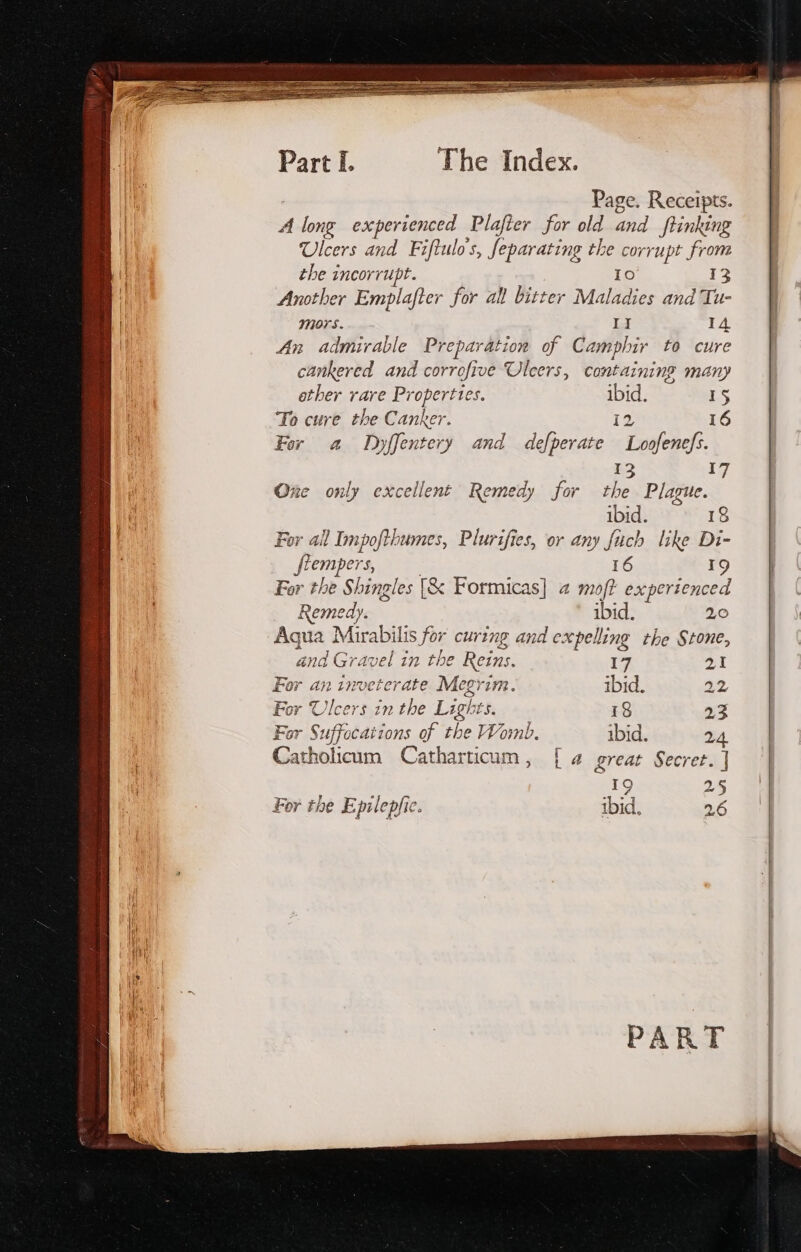 Part I. The Index.
Page. Receipts.
A long experienced Plaſter for old and ſtinking
Ulcers and Fiſtulo's, ſeparating the corrupt from
the incorrupt. 10 13
Another Emplaſter for all bitter Maladies and Tu-
mors. 11 14
An admirable Preparation of Camphir to cure
cankered and corroſive Ulcers, containing many
other rare Properties. ibid. 15
To cure the Canker. 12 16
For a Dyſſentery and deſperate Looſeneſs.
13 17
One only excellent Remedy for the Plague.
ibid. 18
For all Impoſthumes, Pluriſies, or any ſuch like Di-
ſtempers, 16 19
For the Shingles [& Formicas] a moſt experienced
Remedy. ibid. 20
Aqua Mirabilis for curing and expelling the Stone,
and Gravel in the Reins. 17 21
For an inveterate Megrim. ibid. 22
For Ulcers in the Lights. 18 23
For Suffocations of the Womb. ibid. 24
Catholicum Catharticum, [a great Secret.]
19 25
For the Epilepſic. ibid. 26
PART